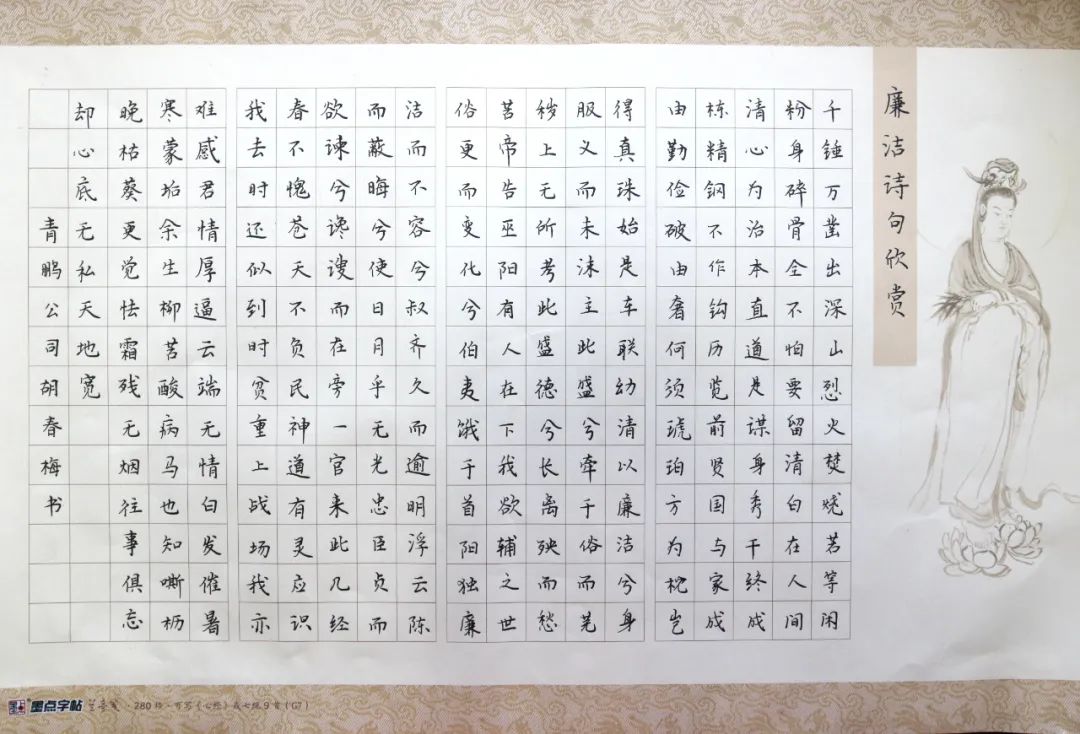 廉洁诗句欣赏
千锤万凿出深山烈火焚烧若等闲
粉身碎骨全不怕要留清白在人间
清心为治本直道是谋身秀干终成
栋精钢不作钩历览前贤国与家成
由勤俭破由奢何须琥珀方为枕岂
得真珠始是车联幼清以廉洁兮身
服义而未沫主此盛兮牵于俗而芜
秽上无所考此盛德兮长离殃而愁
苦帝告巫阳有人在下我欲辅之世
俗更而变化兮伯夷饿于首阳独廉
洁而不容兮叔齐久而逾明浮云陈
而蔽晦兮使日月乎无光忠臣贞而
欲谏兮谗谀而在旁一官来此几经
春不愧苍天不负民神道有灵应识
我去时还似到时贫重上战场我亦
难感君情厚逼云端无情白发催暑
寒蒙垢余生柳苦酸病马也知嘶枥
晚枯葵更觉怯霜残无烟往事俱忘
却心底无私天地宽
青鹏公司胡春梅书
墨点字帖 · 280格 · 可写《心经》或七绝9首(G7)